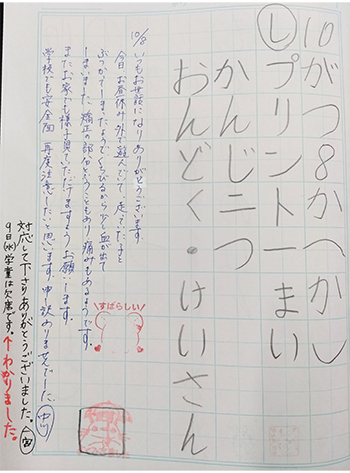 10がつ8かへかし
しプリント一まい
かんじ二つ
おんどく・けいさん
10/8 いつもお世話になりありがとうございます。
今日、お昼休み外で遊んでいて、走っていた子と
ぶつかってしまったようで、くちびるから少し血が出て
しまいました。矯正の部分ということもあり、痛みもあるようです。
またお家でも様子見ていただけますようお願いします。
学校でも安全面、再度注意したいと思います。申し訳ありませんでした。
すばらしい!
対応して下さりありがとうございました。
9日(水)学童は欠席です。↑わかりました。